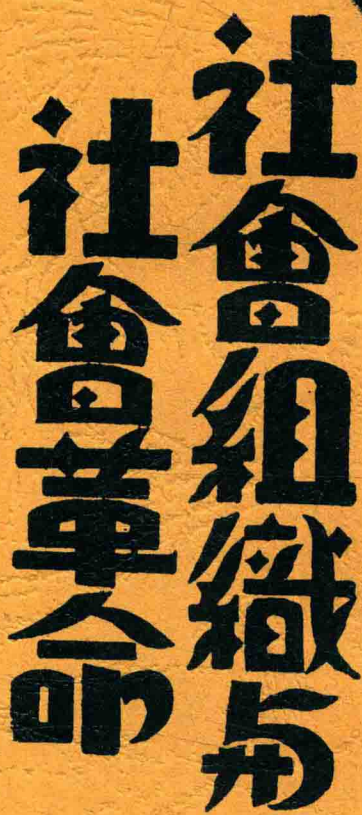 社會組織与
社會革命